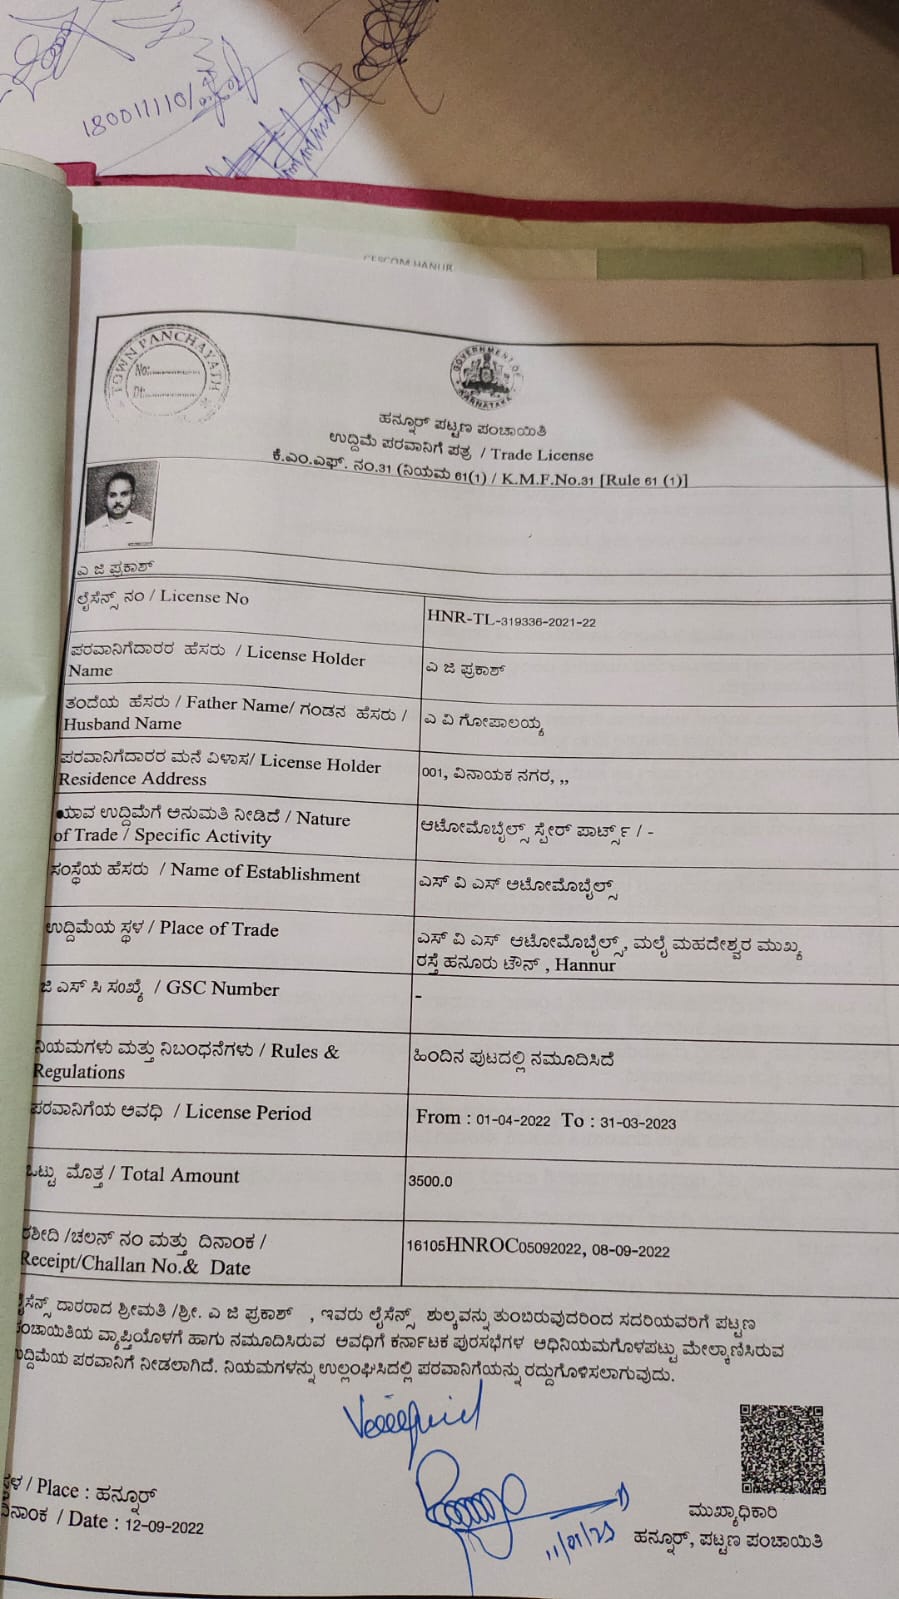 180011110/
CESCOM HANUR
TOWN PANCHAYATH
No:..............
Dt:..............
GOVERNMENT OF KARNATAKA
ಹನ್ನೂರ್ ಪಟ್ಟಣ ಪಂಚಾಯಿತಿ
ಉದ್ದಿಮೆ ಪರವಾನಿಗೆ ಪತ್ರ / Trade License
ಕೆ.ಎಂ.ಎಫ್. ನಂ.31 (ನಿಯಮ 61(1) / K.M.F.No.31 [Rule 61 (1)]
ಎ ಜಿ ಪ್ರಕಾಶ್
ಲೈಸೆನ್ಸ್ ನಂ / License No
HNR-TL-319336-2021-22
ಪರವಾನಿಗೆದಾರರ ಹೆಸರು / License Holder
Name
ಎ ಜಿ ಪ್ರಕಾಶ್
ತಂದೆಯ ಹೆಸರು / Father Name/ ಗಂಡನ ಹೆಸರು /
Husband Name
ಎ ವಿ ಗೋಪಾಲಯ್ಯ
ಪರವಾನಿಗೆದಾರರ ಮನೆ ವಿಳಾಸ/ License Holder
Residence Address
001, ವಿನಾಯಕ ನಗರ, ,,
ಯಾವ ಉದ್ದಿಮೆಗೆ ಅನುಮತಿ ನೀಡಿದೆ / Nature
of Trade / Specific Activity
ಆಟೋಮೊಬೈಲ್ಸ್ ಸ್ಪೇರ್ ಪಾರ್ಟ್ಸ್ / -
ಸಂಸ್ಥೆಯ ಹೆಸರು / Name of Establishment
ಎಸ್ ವಿ ಎಸ್ ಆಟೋಮೊಬೈಲ್ಸ್
ಉದ್ದಿಮೆಯ ಸ್ಥಳ / Place of Trade
ಎಸ್ ವಿ ಎಸ್ ಆಟೋಮೊಬೈಲ್ಸ್, ಮಲೈ ಮಹದೇಶ್ವರ ಮುಖ್ಯ
ರಸ್ತೆ ಹನೂರು ಟೌನ್ , Hannur
ಜಿ ಎಸ್ ಸಿ ಸಂಖ್ಯೆ / GSC Number
-
ನಿಯಮಗಳು ಮತ್ತು ನಿಬಂಧನೆಗಳು / Rules &
Regulations
ಹಿಂದಿನ ಪುಟದಲ್ಲಿ ನಮೂದಿಸಿದೆ
ಪರವಾನಿಗೆಯ ಅವಧಿ / License Period
From : 01-04-2022 To : 31-03-2023
ಒಟ್ಟು ಮೊತ್ತ / Total Amount
3500.0
ರಶೀದಿ /ಚಲನ್ ನಂ ಮತ್ತು ದಿನಾಂಕ /
Receipt/Challan No.& Date
16105HNROC05092022, 08-09-2022
ಲೈಸೆನ್ಸ್ ದಾರರಾದ ಶ್ರೀಮತಿ /ಶ್ರೀ. ಎ ಜಿ ಪ್ರಕಾಶ್ , ಇವರು ಲೈಸೆನ್ಸ್ ಶುಲ್ಕವನ್ನು ತುಂಬಿರುವುದರಿಂದ ಸದರಿಯವರಿಗೆ ಪಟ್ಟಣ
ಪಂಚಾಯಿತಿಯ ವ್ಯಾಪ್ತಿಯೊಳಗೆ ಹಾಗು ನಮೂದಿಸಿರುವ ಅವಧಿಗೆ ಕರ್ನಾಟಕ ಪುರಸಭೆಗಳ ಅಧಿನಿಯಮಗೊಳಪಟ್ಟು ಮೇಲ್ಕಾಣಿಸಿರುವ
ಉದ್ದಿಮೆಯ ಪರವಾನಿಗೆ ನೀಡಲಾಗಿದೆ. ನಿಯಮಗಳನ್ನು ಉಲ್ಲಂಘಿಸಿದಲ್ಲಿ ಪರವಾನಿಗೆಯನ್ನು ರದ್ದುಗೊಳಿಸಲಾಗುವುದು.
ಸ್ಥಳ / Place : ಹನ್ನೂರ್
ದಿನಾಂಕ / Date : 12-09-2022
11/01/23
ಮುಖ್ಯಾಧಿಕಾರಿ
ಹನ್ನೂರ್, ಪಟ್ಟಣ ಪಂಚಾಯಿತಿ